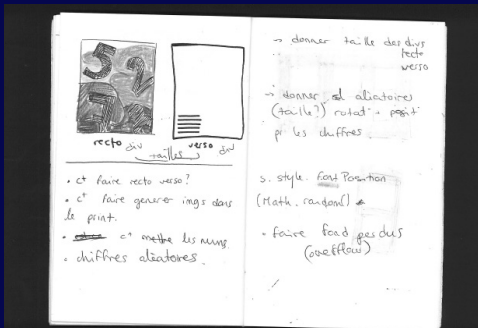 5 2
7
recto div
verso div
tailles
• ct faire recto verso?
• ct faire generer imgs dans
le print.
• ct mettre les nums.
• chiffres aléatoires.
→ donner taille des divs
recto
verso
→ donner aliatoires
(taille?) rotat° + posit°
pr les chiffres
s. style. Font Position
(Math. random()
• faire fond perdus
(overflow)